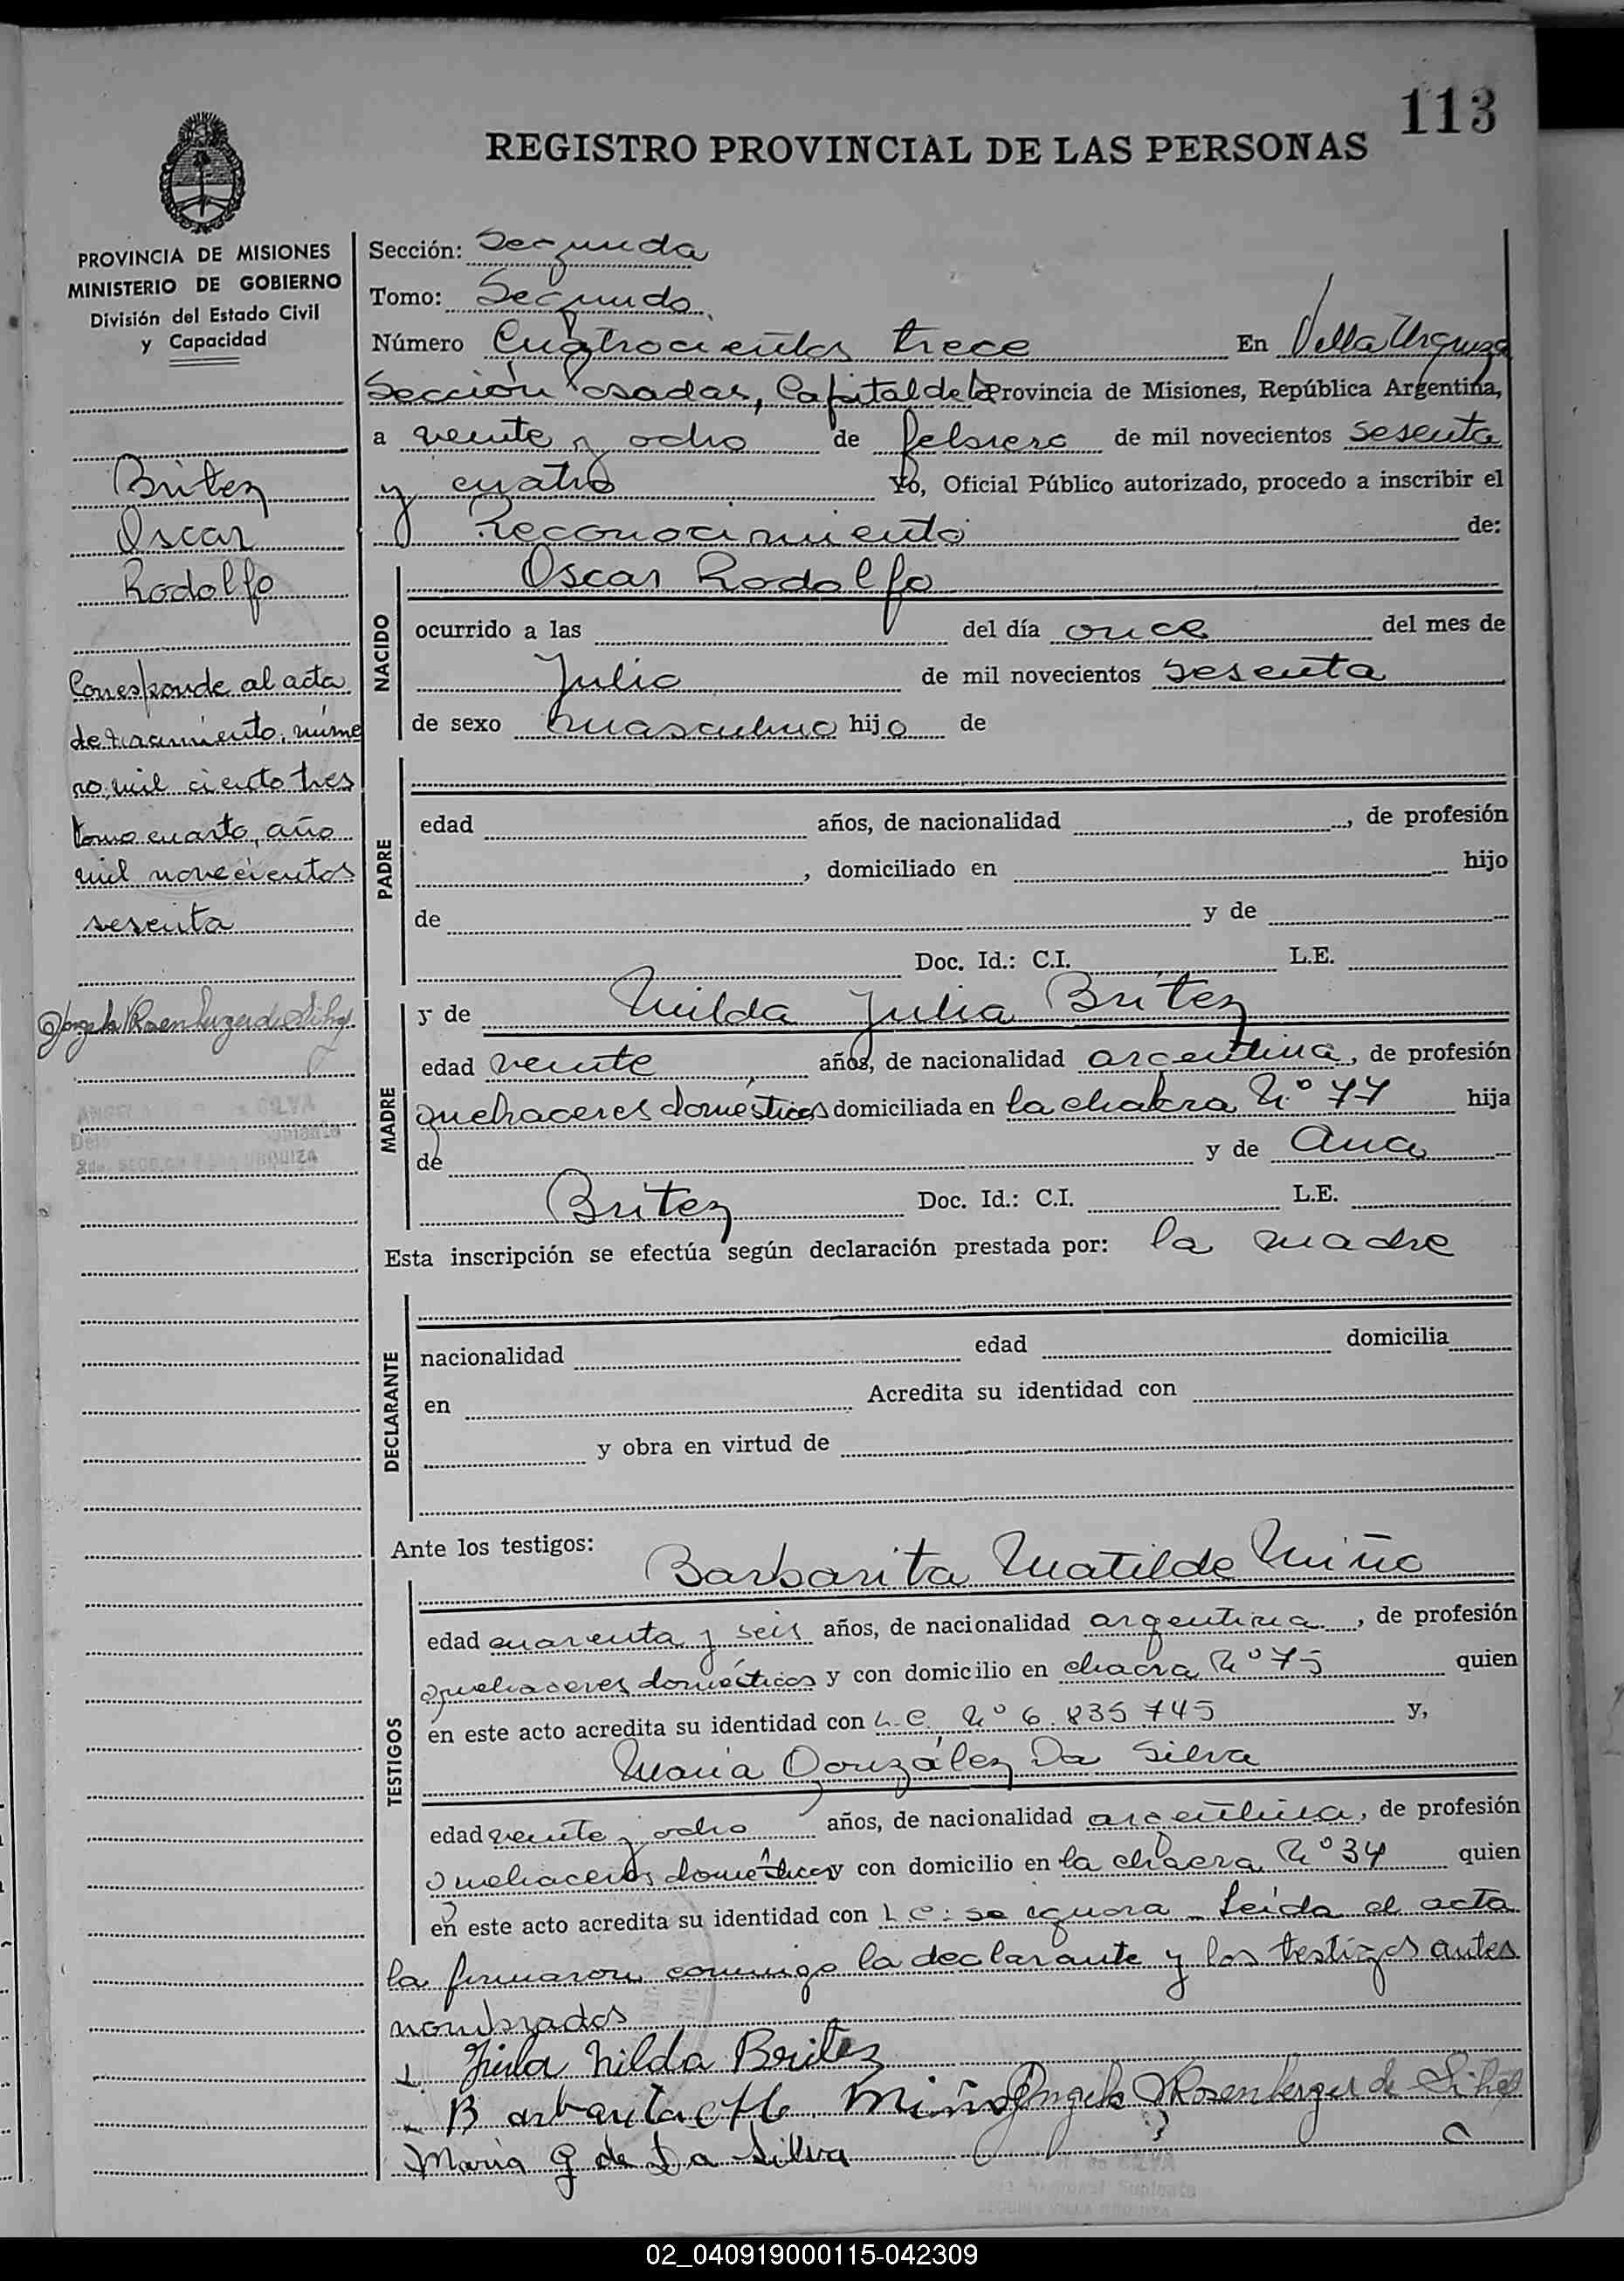 113
REGISTRO PROVINCIAL DE LAS PERSONAS
PROVINCIA DE MISIONES
MINISTERIO DE GOBIERNO
División del Estado Civil
y Capacidad
Britez
Oscar
Rodolfo
Corresponde al acta
de nacimiento, núme
ro mil ciento tres
tomo cuarto, año
mil novecientos
sesenta
Angela Rosenberger de Silva
SILVA
Sección: Segunda
Tomo: Segundo
Número Cuatrocientos trece En Villa Urquiza
Sección Posadas, Capital de la Provincia de Misiones, República Argentina,
a veinte y ocho de febrero de mil novecientos sesenta
y cuatro Yo, Oficial Público autorizado, procedo a inscribir el
Reconocimiento de:
NACIDO
Oscar Rodolfo
ocurrido a las del día once del mes de
Julio de mil novecientos sesenta
de sexo masculino hijo de
PADRE
edad años, de nacionalidad , de profesión
, domiciliado en hijo
de y de
Doc. Id.: C.I. L.E.
MADRE
y de Nilda Julia Britez
edad veinte años, de nacionalidad argentina, de profesión
quehaceres domésticos domiciliada en la chakra N.º 77 hija
de y de Ana
Britez Doc. Id.: C.I. L.E.
Esta inscripción se efectúa según declaración prestada por: la madre
DECLARANTE
nacionalidad edad domicilia
en Acredita su identidad con
y obra en virtud de
Ante los testigos:
TESTIGOS
Barbarita Matilde Miño
edad cuarenta y seis años, de nacionalidad argentina, de profesión
quehaceres domésticos y con domicilio en chacra Nº 75 quien
en este acto acredita su identidad con L.C. Nº 6.835.745 y,
María González Da Silva
edad veinte y ocho años, de nacionalidad argentina, de profesión
quehaceres domésticos y con domicilio en la chacra Nº 34 quien
en este acto acredita su identidad con L C: se ignora - Leída el acta
la firmaron conmigo la declarante y los testigos antes
nombrados
Julia Nilda Britez
Barbarita M. Miño Angela Rosenberger de Silva
Maria G de Da Silva
02_040919000115-042309